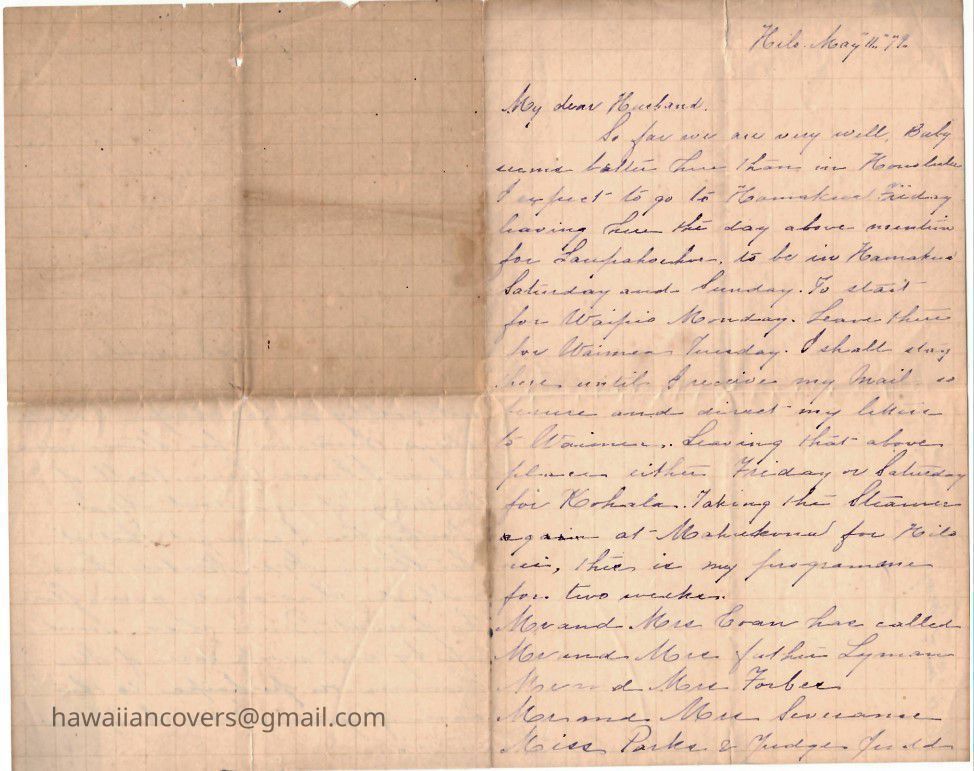 Hilo May 11th 79.
My dear Husband.
So far we are very well, Baby
seems better here than in Honolulu
I expect to go to Hamakua Friday
leaving here the day above mention
for Laupahoehoe. to be in Hamakua
Saturday and Sunday. To start
for Waipio Monday. Leave there
for Waimea Tuesday. I shall stay
here until I receive my Mail so
be sure and direct my letters
to Waimea. Leaving that above
place either Friday or Saturday
for Kohala. Taking the Steamer
again at Mahukona for Hilo
this is my programme
for two weeks.
Mr and Mrs Evan has called
Mr and Mrs father Lyman
Mr and Mrs Forbes
Mr and Mrs Severance
Miss Parks & Judge Judd
hawaiiancovers@gmail.com